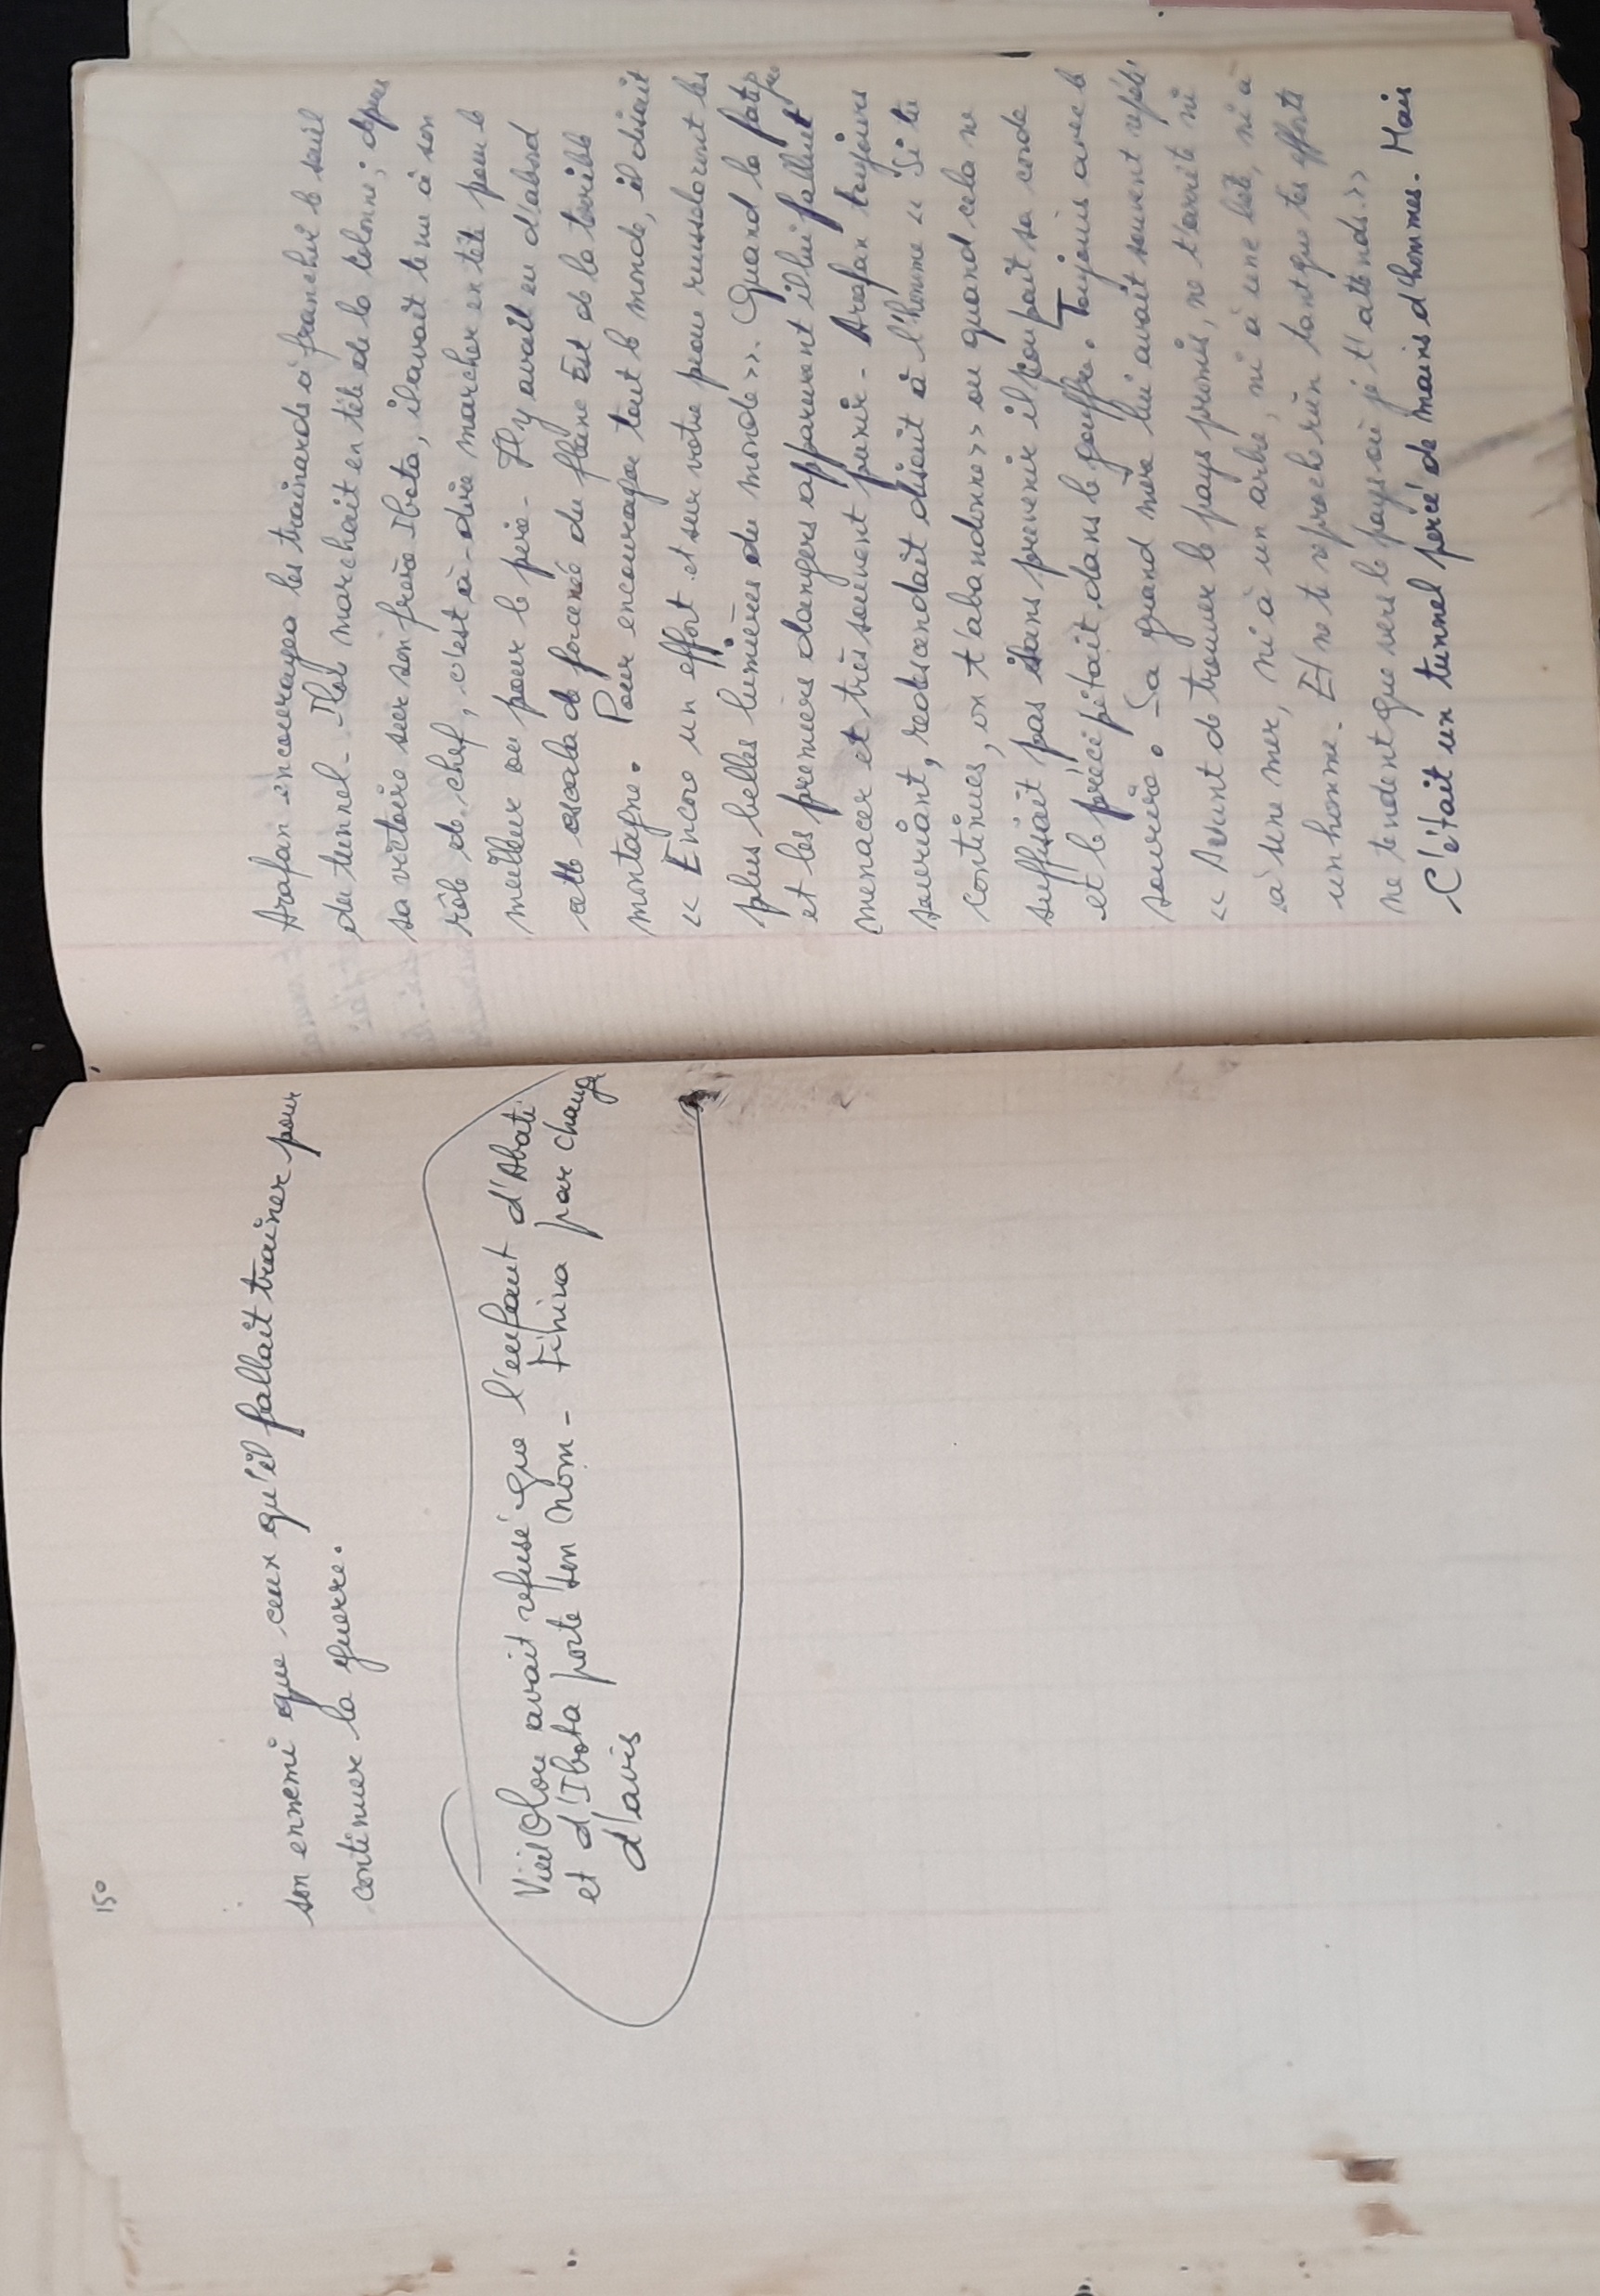 150
son ennemi que ceux qu'il fallait traîner pour
continuer la guerre.
Vieil Olou avait refusé que l'enfant d'Abati
et d'Ibota porte son nom - Fihina par change
d'avis
Arafan encouragea les trainards à franchir le seuil
du tunnel - Il marchait en tête de la colonne ; depuis
sa victoire sur son frère Ibota, il avait tenu à son
rôle de chef, c'est-à-dire marcher en tête pour le
meilleur ou pour le pire - Il y avait eu d'abord
cette escalade forcenée du flanc Est de la terrible
montagne. Pour encourager tout le monde, il disait
« Encore un effort et sur votre peau ruisselleront les
plus belles lumières du monde ». Quand la fatigue
et les premiers dangers apparurent il lui fallut
menacer et très souvent punir - Arafan toujours
souriant, redescendait disait à l'homme « Si tu
continues, on t'abandonne » ou quand cela ne
suffisait pas sans prevenir il coupait sa corde
et le précépitait dans le gouffre. Toujours avec le
sourire. Sa grand mère lui avait souvent répété
« Avant de trouver le pays promis, ne t'arrête ni
à une mer, ni à un arbre, ni à une bête, ni à
un homme. Et ne te reproche rien tant que tes efforts
ne tendent que vers le pays où je t'attends. »
C'était un tunnel percé de mains d'hommes. Mais